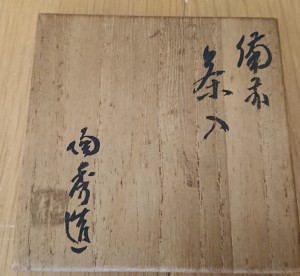 備前
茶入
陶秀造